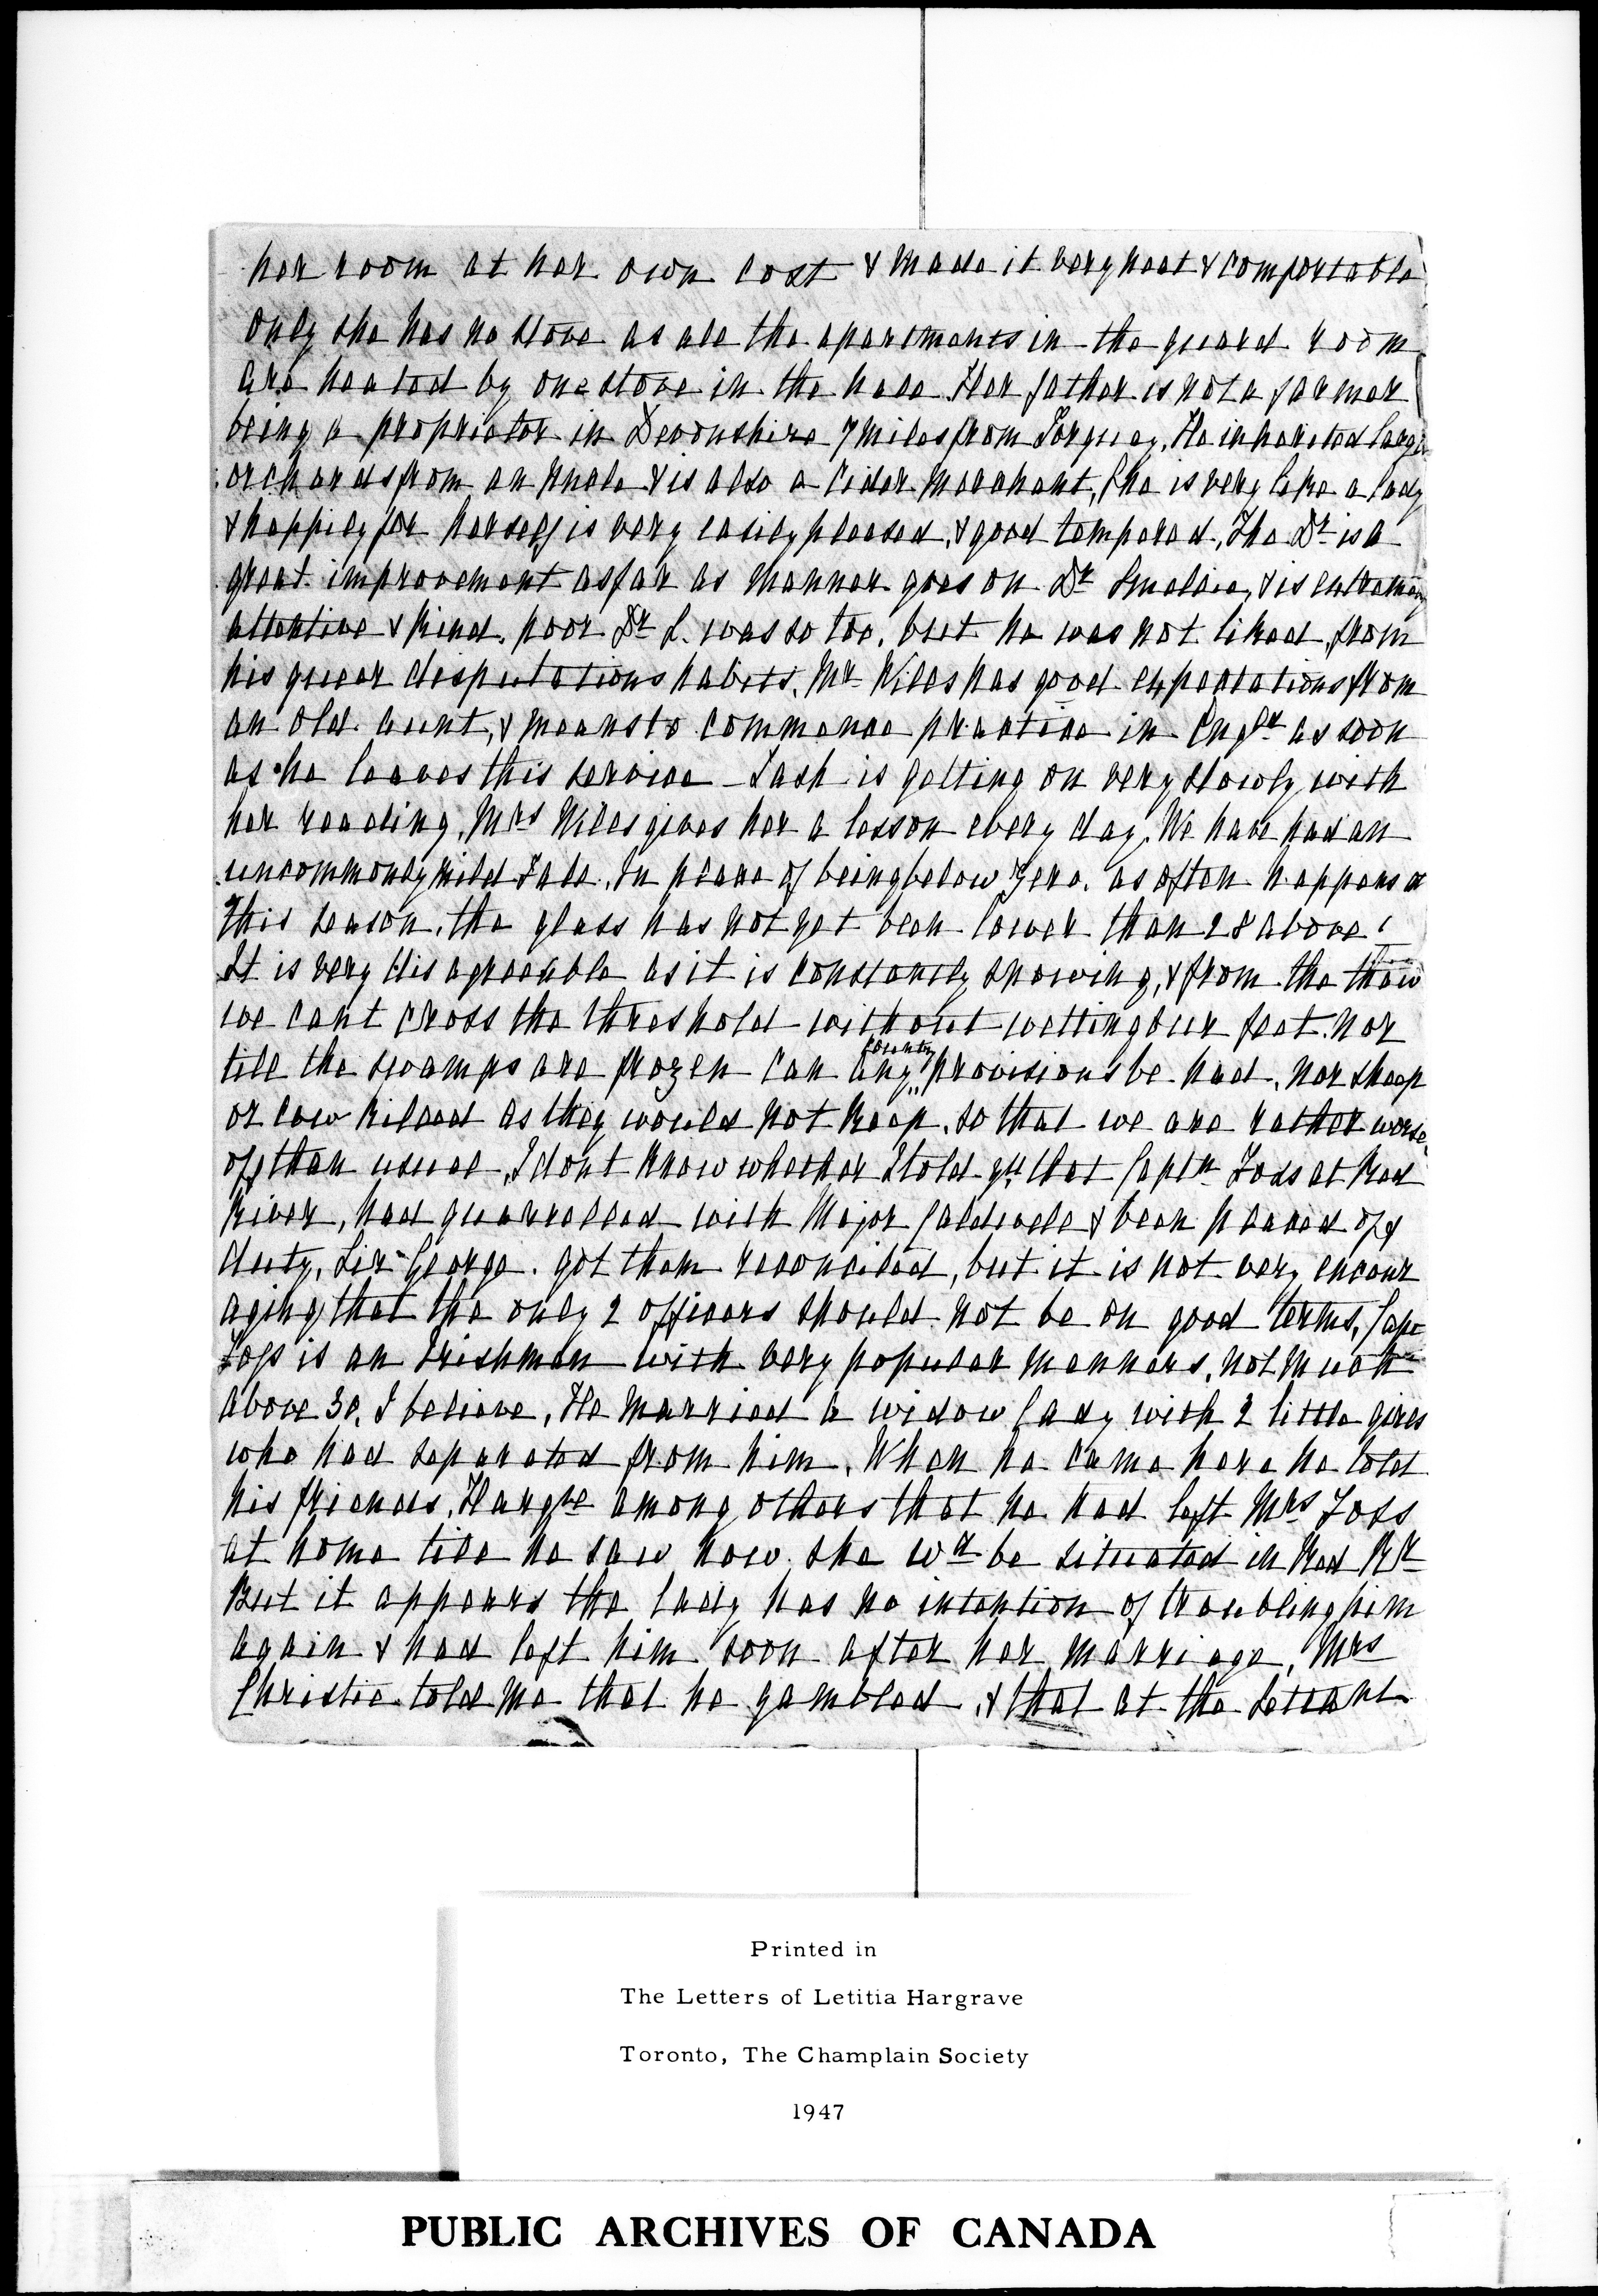 her room at her own cost & made it very neat & comfortable
Only she has no stove as all the apartments in the guard room
are heated by one stove in the hall. Her father is not a farmer
being a proprietor in Devonshire 7 miles from Torquay. He inherited large
orchards from an Uncle & is also a Cider Merchant, She is very like a lady
& happily for herself is very easily pleased, & good tempered, The Dr is a
great improvement as far as manner goes on Dr Smellie, & is extremely
attentive & kind. poor Dr S. was so too, but he was not liked, from
his queer disputations habits. Mr Niles has good expectations from
an old aunt, & means to commence practice in Engld as soon
as he leaves this service _ Tash is getting on very slowly with
her reading, Mrs Niles gives her a lesson every day. We have had an
uncommonly mild Fall. In place of being below zero. as often happens at
this season, the glass has not yet been lower than 28 above!
It is very disagreeable as it is constantly snowing, & from the thaw
we cant cross the threshold without wetting our feet. Nor
till the swamps are frozen can any country provisions be had, nor sheep
or cow killed as they would not keep, so that we are rather worse
off than usual, I dont know whether I told yu that Captn Foss at Red
River, had quarrelled with Major Caldwell & been placed off
duty, Sir George got them reconciled, but it is not very encour
aging that the only 2 officers should not be on good terms, Capt
Foss is an Irishman with very popular manners, not much
above 30, I believe, He married a widow lady with 2 little girls
who had separated from him, When he came here he told
his friends, Hargve among others that he had left Mrs Foss
at home till he saw how she wd be situated in Red Rr
But it appears the lady has no intention of troubling him
again & had left him soon after her marriage, Mrs
Christie told me that he gambled, & that at the Settlemt
Printed in
The Letters of Letitia Hargrave
Toronto, The Champlain Society
1947
PUBLIC ARCHIVES OF CANADA